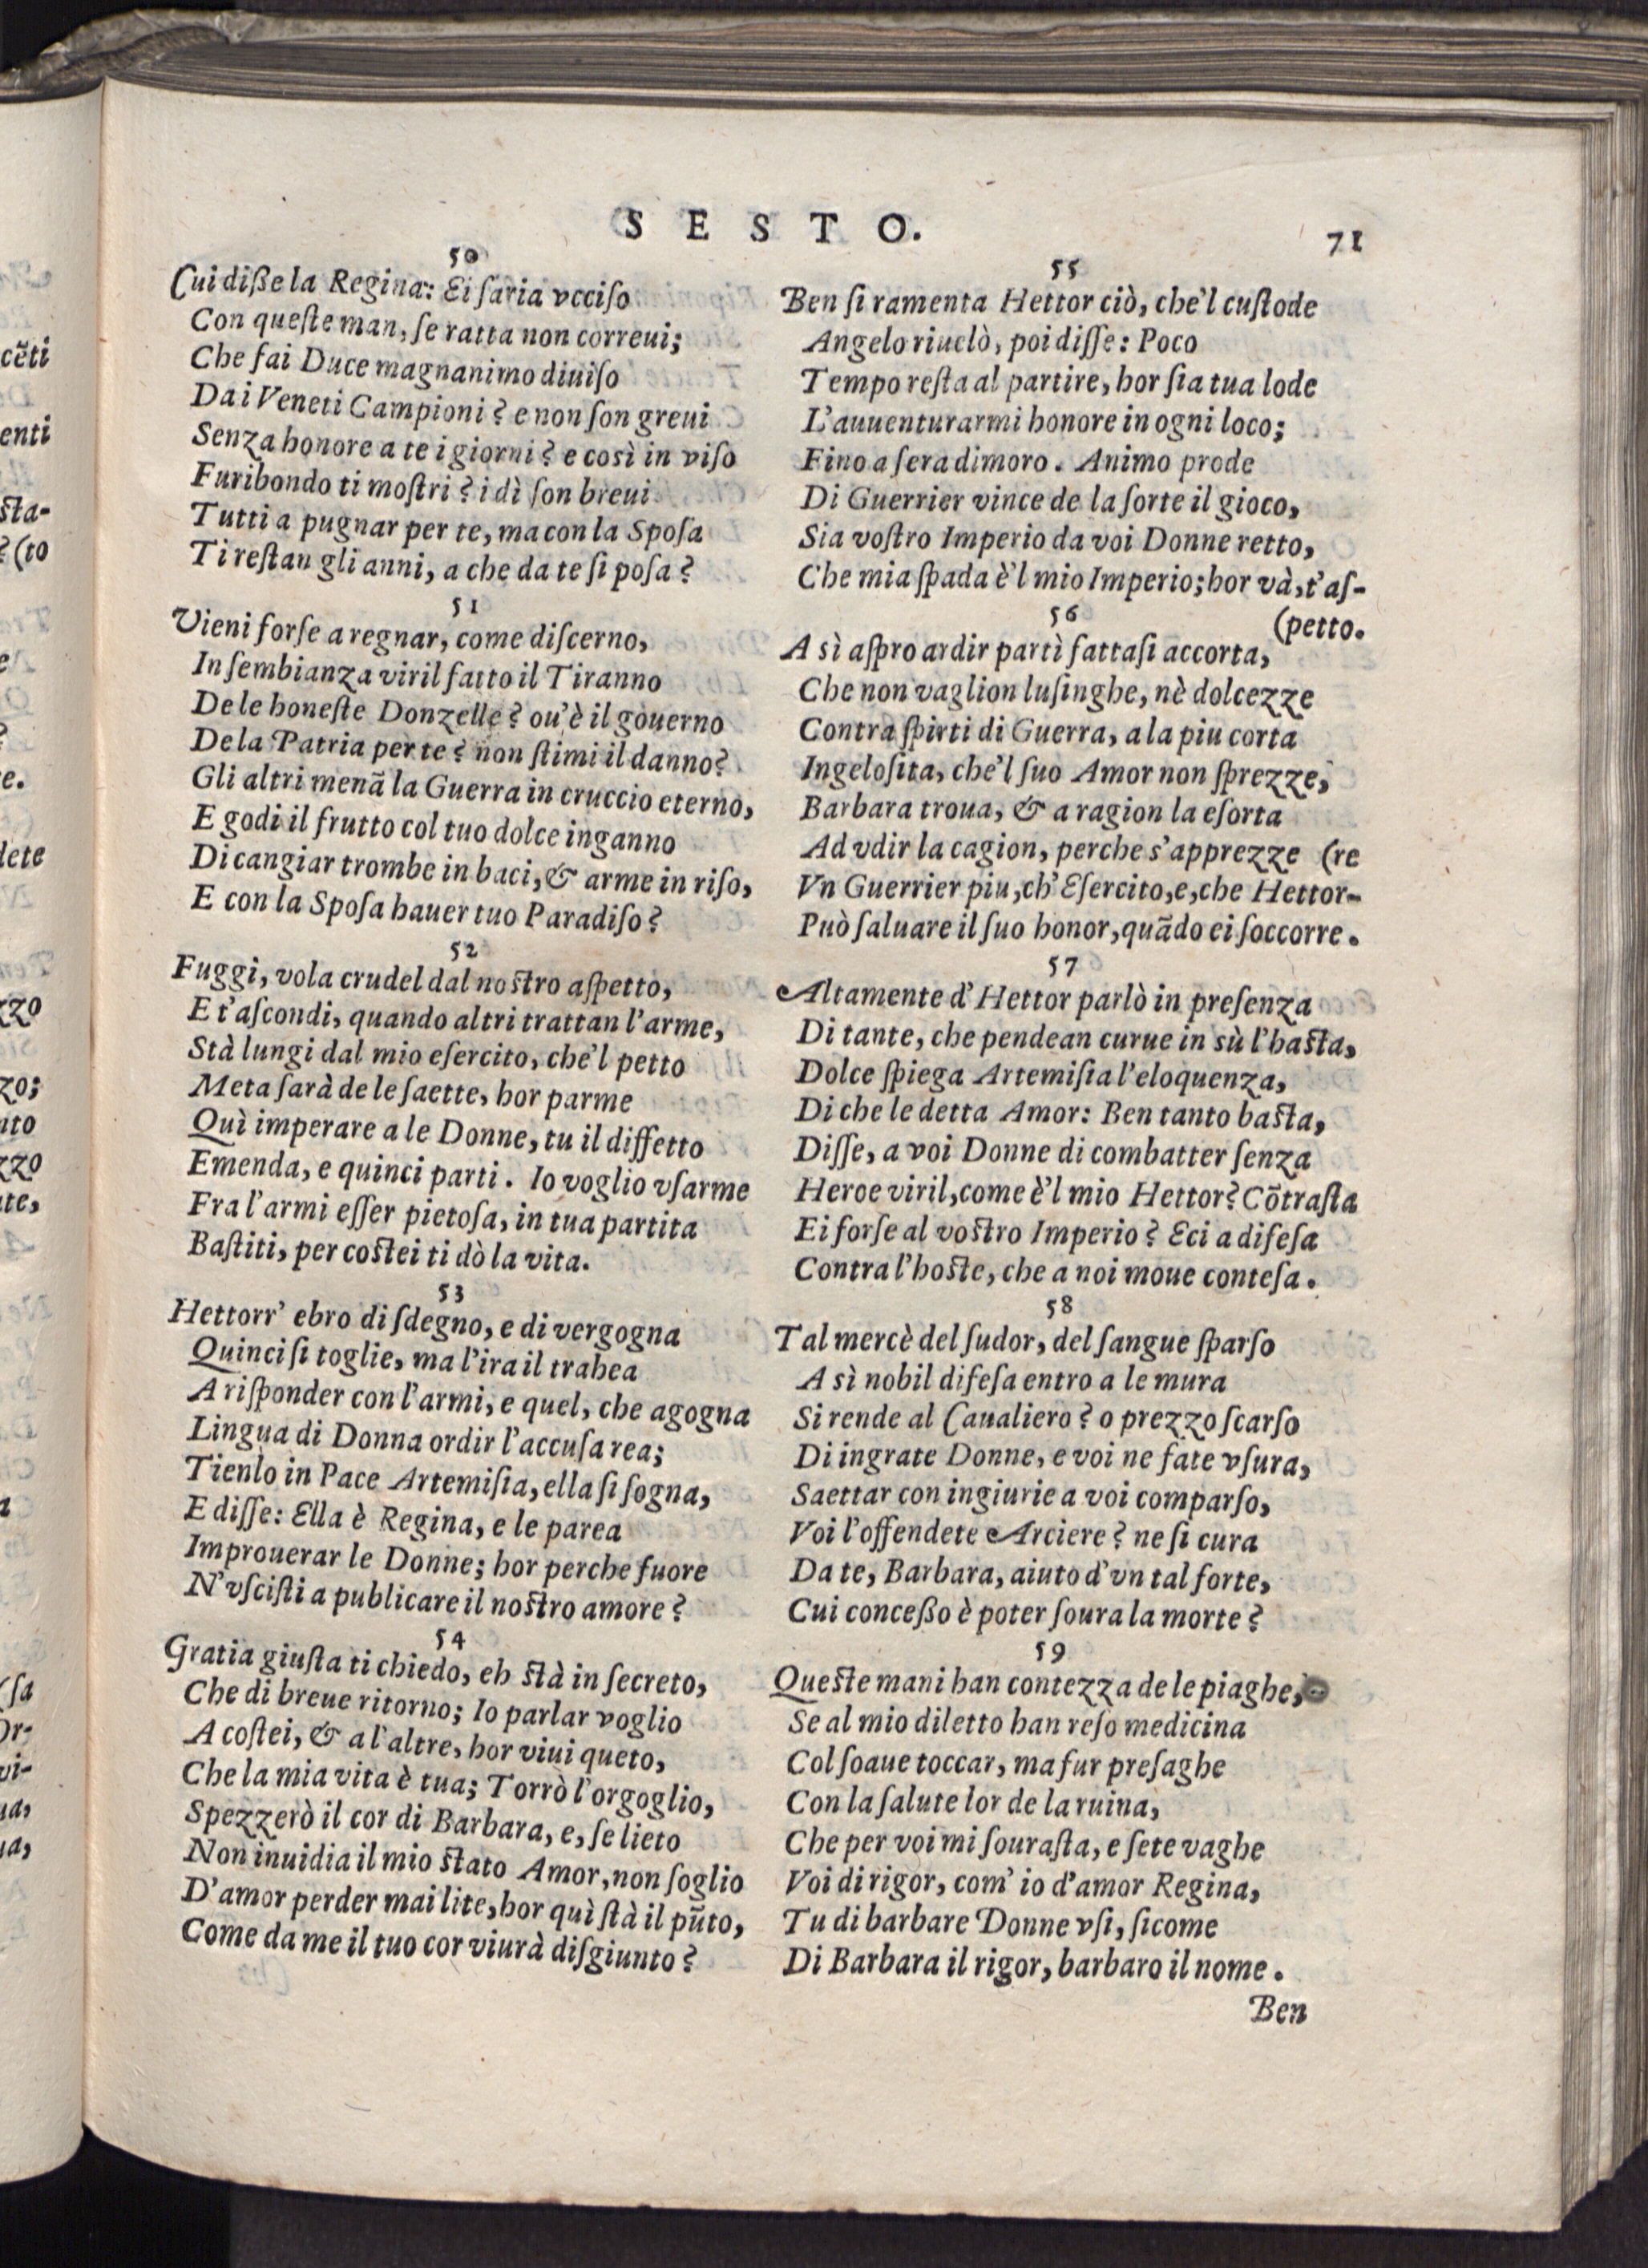 SESTO.
71
50
Cui dißela Regina: Ei ſaria vcciſo
Con queſte man, ſe ratta non correui;
Che fai Duce magnanimo diuiſo
Dai Veneti Campioni? e non ſon greui
Senza honore a te i giorni? e così in viſo
Furibondo ti moſtri? i dì ſon breui
Tutti a pugnar per te, ma con la Spoſa
Ti reſtan gli anni, a che da te ſi poſa?
51
Vieni forſe a regnar, come diſcerno,
In ſembianza viril fatto il Tiranno
De le honeſte Donzelle? ou'è il gouerno
De la Patria per te? non ſtimi il danno?
Gli altri menã la Guerra in cruccio eterno,
E godi il frutto col tuo dolce inganno
Di cangiar trombe in baci, & arme in riſo,
E con la Spoſa hauer tuo Paradiſo?
52
Fuggi, vola crudel dal noſtro aſpetto,
E t'aſcondi, quando altri trattan l'arme,
Stà lungi dal mio eſercito, che'l petto
Meta ſarà de le ſaette, hor parme
Quì imperare a le Donne, tu il diffetto
Emenda, e quinci parti. Io voglio vſarme
Fra l'armi eſſer pietoſa, in tua partita
Baſtiti, per coſtei ti dò la vita.
53
Hettorr' ebro di ſdegno, e di vergogna
Quinci ſi toglie, ma l'ira il trahea
A riſponder con l'armi, e quel, che agogna
Lingua di Donna ordir l'accuſa rea;
Tienlo in Pace Artemiſia, ella ſi ſogna,
E diſſe: Ella è Regina, e le parea
Improuerar le Donne; hor perche fuore
N'vſciſti a publicare il noſtro amore?
54
Gratia giuſta ti chiedo, eh ſtà in ſecreto,
Che di breue ritorno; Io parlar voglio
A coſtei, & a l'altre, hor viui queto,
Che la mia vita è tua; Torrò l'orgoglio,
Spezzerò il cor di Barbara, e, ſe lieto
Non inuidia il mio ſtato Amor, non ſoglio
D'amor perder mai lite, hor quì ſtà il pũto,
Come da me il tuo cor viurà diſgiunto?
55
Ben ſi ramenta Hettor ciò, che'l cuſtode
Angelo riuelò, poi diſſe: Poco
Tempo reſta al partire, hor ſia tua lode
L'auuenturarmi honore in ogni loco;
Fino a ſera dimoro. Animo prode
Di Guerrier vince de la ſorte il gioco,
Sia voſtro Imperio da voi Donne retto,
Che mia ſpada è'l mio Imperio; hor và, t'aſ-
(petto.
56
A sì aſpro ardir partì fattaſi accorta,
Che non vaglion luſinghe, nè dolcezze
Contra ſpirti di Guerra, a la piu corta
Ingeloſita, che'l ſuo Amor non ſprezze,
Barbara troua, & a ragion la eſorta
Ad vdir la cagion, perche s'apprezze (re
Vn Guerrier piu, ch'Eſercito, e, che Hettor-
Può ſaluare il ſuo honor, quãdo ei ſoccorre.
57
Altamente d'Hettor parlò in preſenza
Di tante, che pendean curue in sù l'haſta,
Dolce ſpiega Artemiſia l'eloquenza,
Di che le detta Amor: Ben tanto baſta,
Diſſe, a voi Donne di combatter ſenza
Heroe viril, come è'l mio Hettor? Cõtraſta
Ei forſe al voſtro Imperio? Eci a difeſa
Contra l'hoſte, che a noi moue conteſa.
58
Tal mercè del ſudor, del ſangue ſparſo
A sì nobil difeſa entro a le mura
Si rende al Caualiero? o prezzo ſcarſo
Di ingrate Donne, e voi ne fate vſura,
Saettar con ingiurie a voi comparſo,
Voi l'offendete Arciere? ne ſi cura
Da te, Barbara, aiuto d'vn tal forte,
Cui conceßo è poter ſoura la morte?
59
Queſte mani han contezza de le piaghe,
Se al mio diletto han reſo medicina
Col ſoaue toccar, ma fur preſaghe
Con la ſalute lor de la ruina,
Che per voi mi ſouraſta, e ſete vaghe
Voi di rigor, com' io d'amor Regina,
Tu di barbare Donne vſi, ſicome
Di Barbara il rigor, barbaro il nome.
Ben